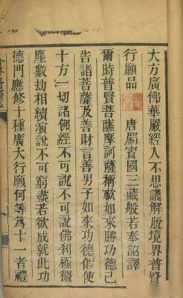 大方廣佛華嚴經入不思議解脫境界普賢
行願品
唐罽賓國三藏般若奉詔譯
爾時普賢菩薩摩訶薩稱歎如來勝功德已
告諸菩薩及善財言善男子如來功德假使
十方一切諸佛經不可說不可說佛刹極微
塵數劫相續演說不可窮盡若欲成就此功
德門應修十種廣大行願何等為十一者禮